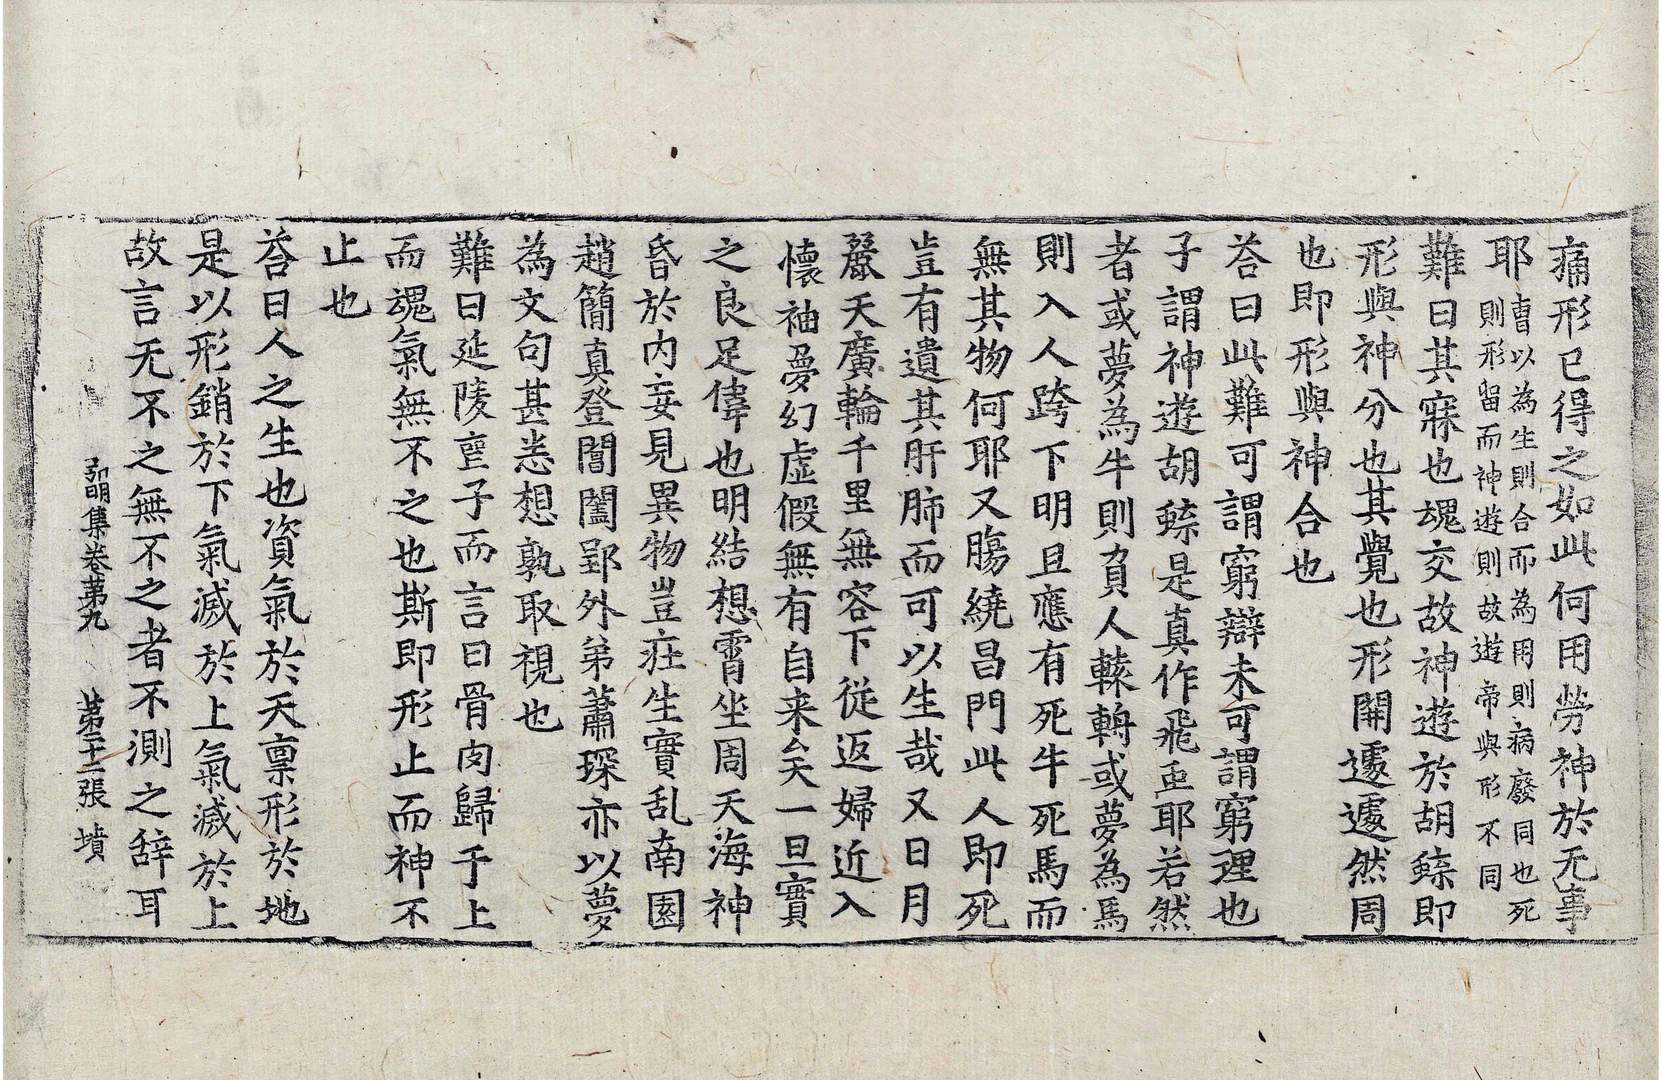 痛形已得之如此何用勞神於无事
耶曺以為生則合而為用則病廢同也死
則形留而神遊則故遊帝與形不同
難曰其寐也魂交故神遊於胡䗫即
形與神分也其覺也形開遽遽然周
也即形與神合也
荅曰此難可謂窮辯未可謂窮理也
子謂神遊胡䗫是真作飛䖝耶若然
者或夢為牛則負人轅輈或夢為馬
則入人跨下明旦應有死牛死馬而
無其物何耶又腸繞昌門此人即死
豈有遺其肝肺而可以生哉又日月
麗天廣輪千里無容下從返婦近入
懷袖夢幻虛假無有自来矣一旦實
之良足偉也明結想霄坐周天海神
昏於內妄見異物豈莊生實乱南園
趙簡真登閶闔郢外弟蕭琛亦以夢
為文句甚悉想孰取視也
難曰延陵窆子而言曰骨肉歸于上
而魂氣無不之也斯即形止而神不
止也
荅曰人之生也資氣於天禀形於地
是以形銷於下氣滅於上氣滅於上
故言无不之無不之者不測之辞耳
弘明集卷第九 第二十二張 墳